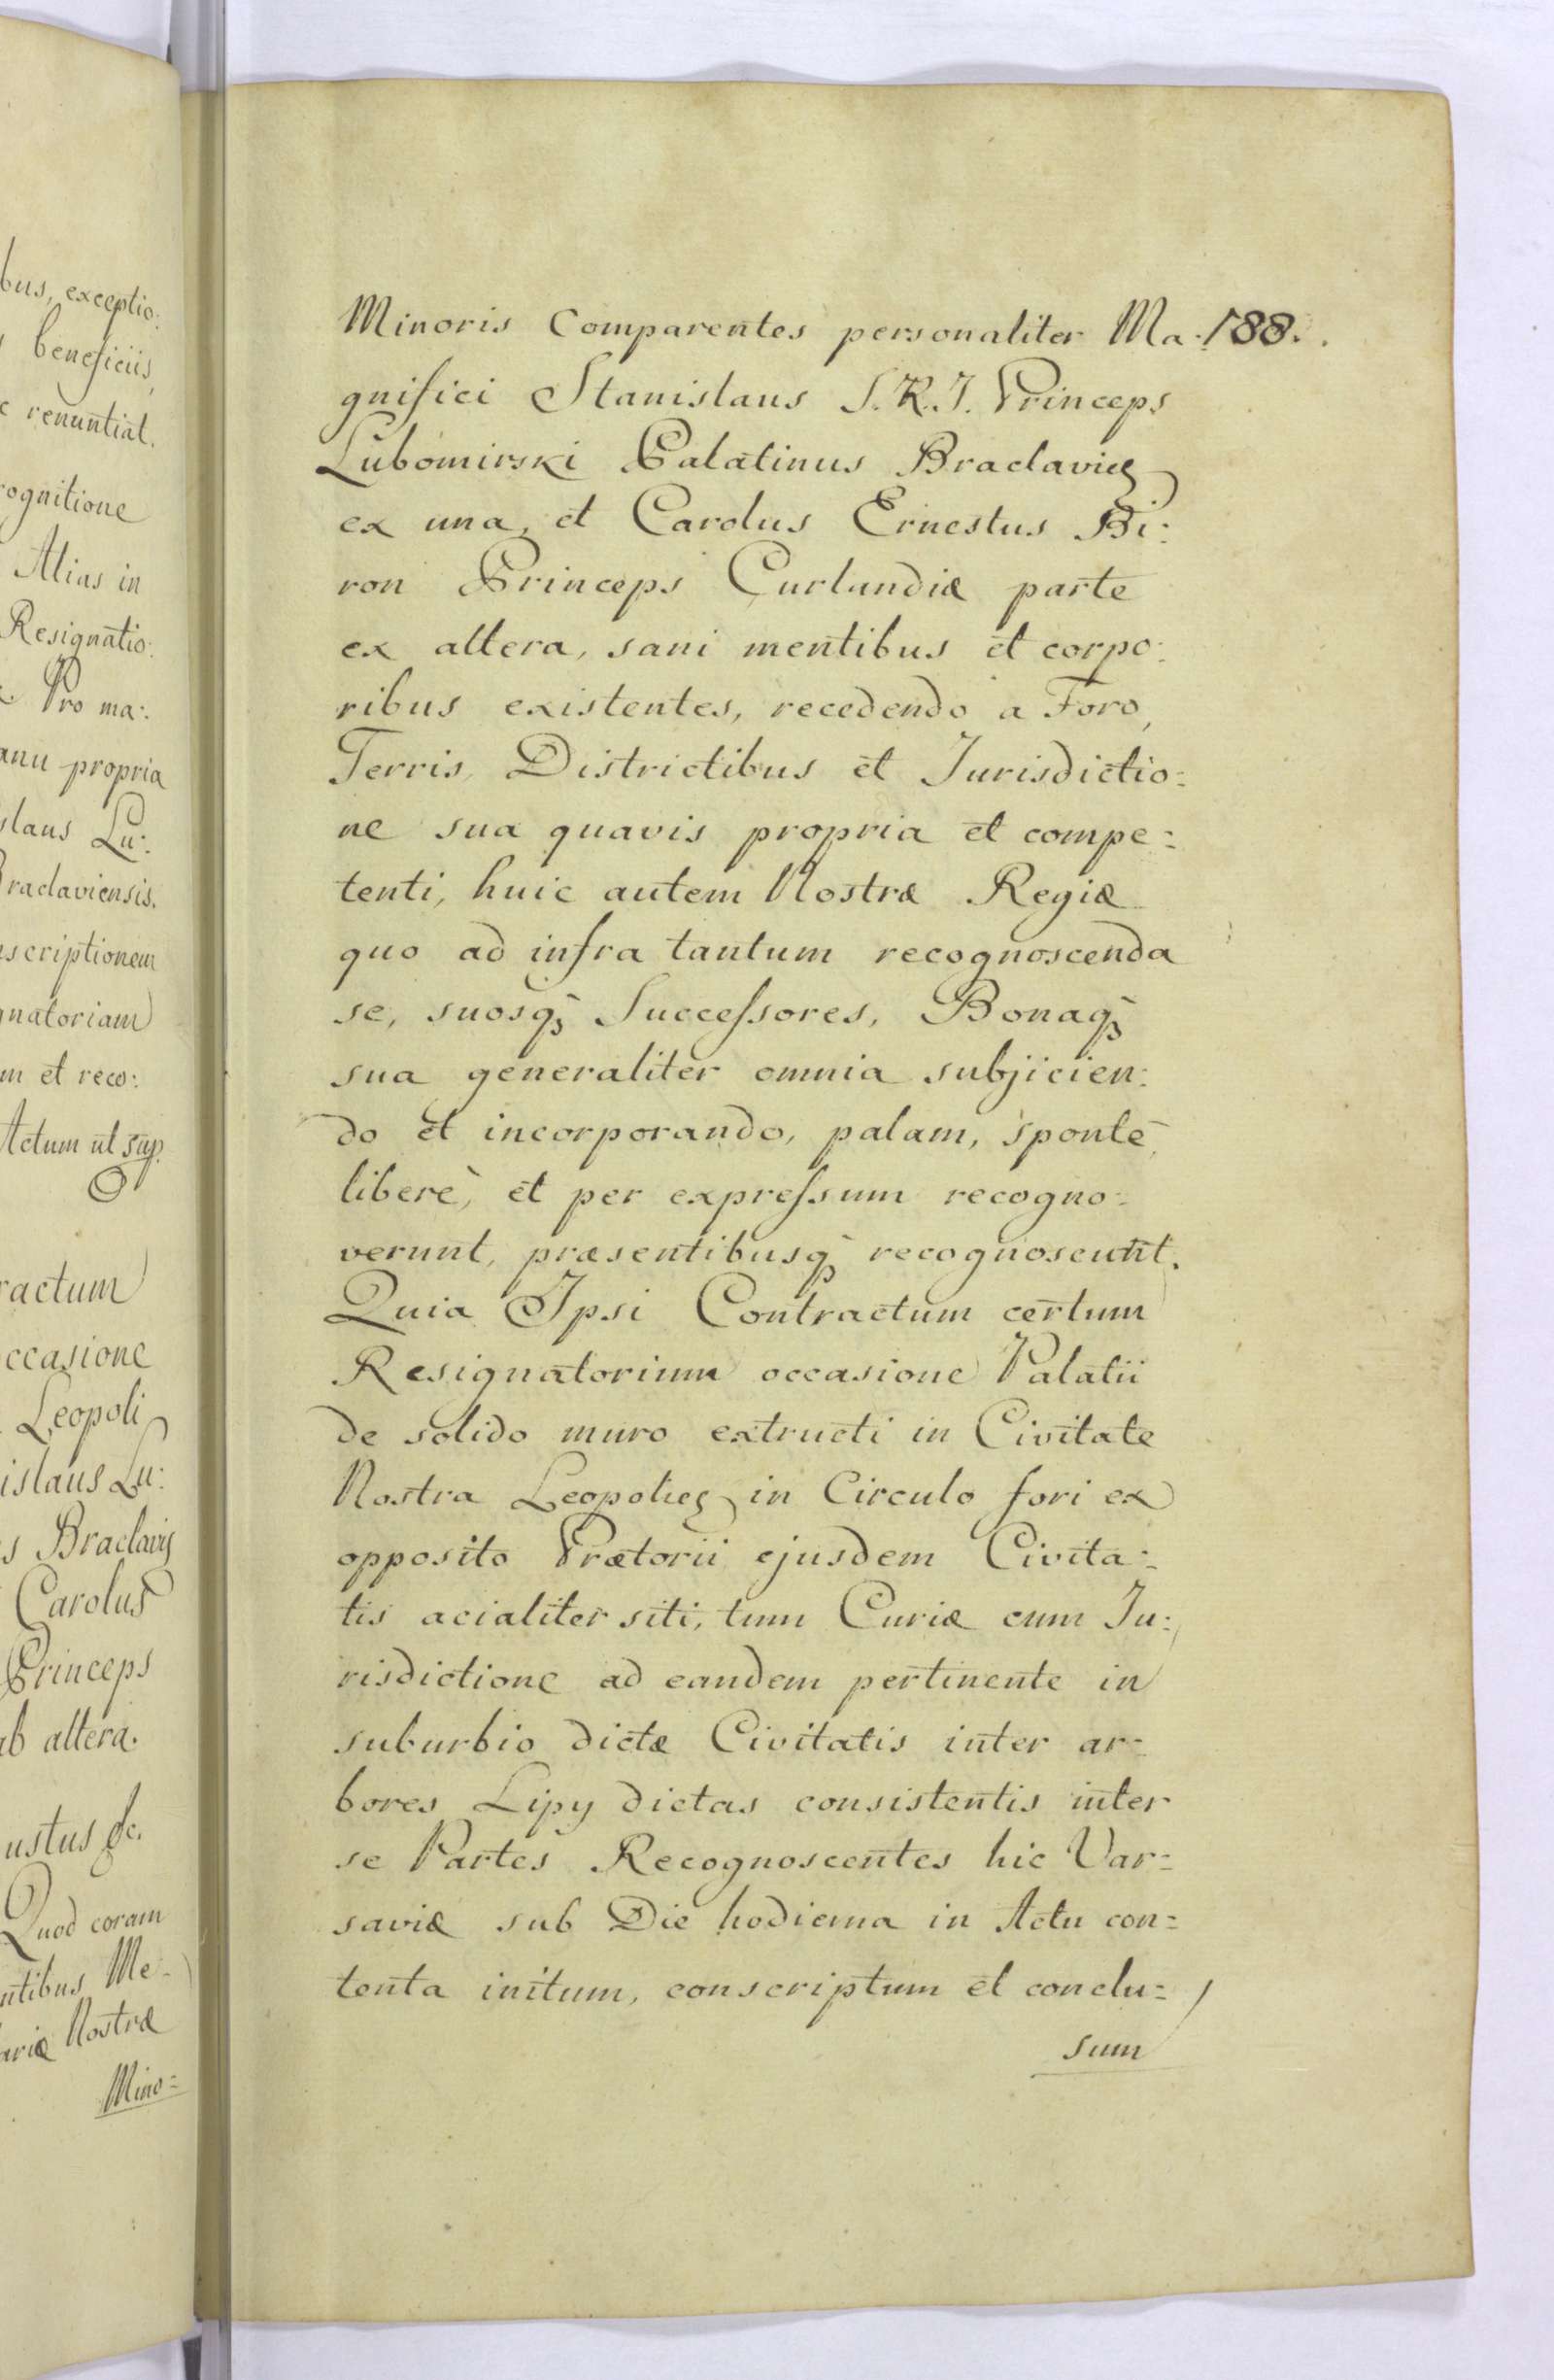 bus, exceptio:
beneficiis,
renuntiat.
cognitione
Alias in
Resignatio:
Pro ma:
anu propria
slaus Lu:
Braclaviensis.
scriptionem
gnatoriam
m et reco:
Actum ut sup.
ractum
occasione
Leopoli
islaus Lu:
s Braclavię
Carolus
Princeps
ab altera.
ustus &c.
Quod coram
ntibus Me-
ariæ Nostræ
Mino=
188.
Minoris Comparentes personaliter Ma-
gnifici Stanislaus S. R. I. Princeps
Lubomirski Palatinus Braclavieę
ex una, et Carolus Ernestus Bi:
ron Princeps Curlandiæ parte
ex altera, sani mentibus et corpo:
ribus existentes, recedendo a Foro,
Terris, Districtibus et Jurisdictio=
ne sua quavis propria et compe=
tenti, huic autem Nostræ Regiæ
quo ad infra tantum recognoscenda
se, suosq; Successores, Bonaq;
sua generaliter omnia subjicien:
do et incorporando, palam, sponte,
liberè, et per expressum recogno:
verunt, præsentibusq; recognoscunt.
Quia Ipsi Contractum certum
Resignatorium occasione Palatii
de solido muro extructi in Civitate
Nostra Leopolieę in Circulo fori ex
opposito Prætorii ejusdem Civita:
tis acialiter siti, tum Curiæ cum Ju:
risdictione ad eandem pertinente in
suburbio dictæ Civitatis inter ar=
bores Lipy dictas consistentis inter
se Partes Recognoscentes hic Var=
saviæ sub Die hodierna in Actu con=
tenta initum, conscriptum et conclu=
sum